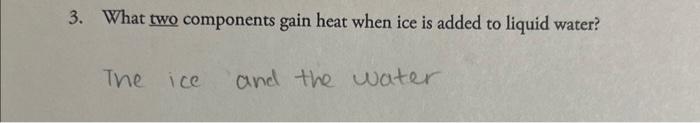 3. What two components gain heat when ice is added to liquid water?
The ice and the water